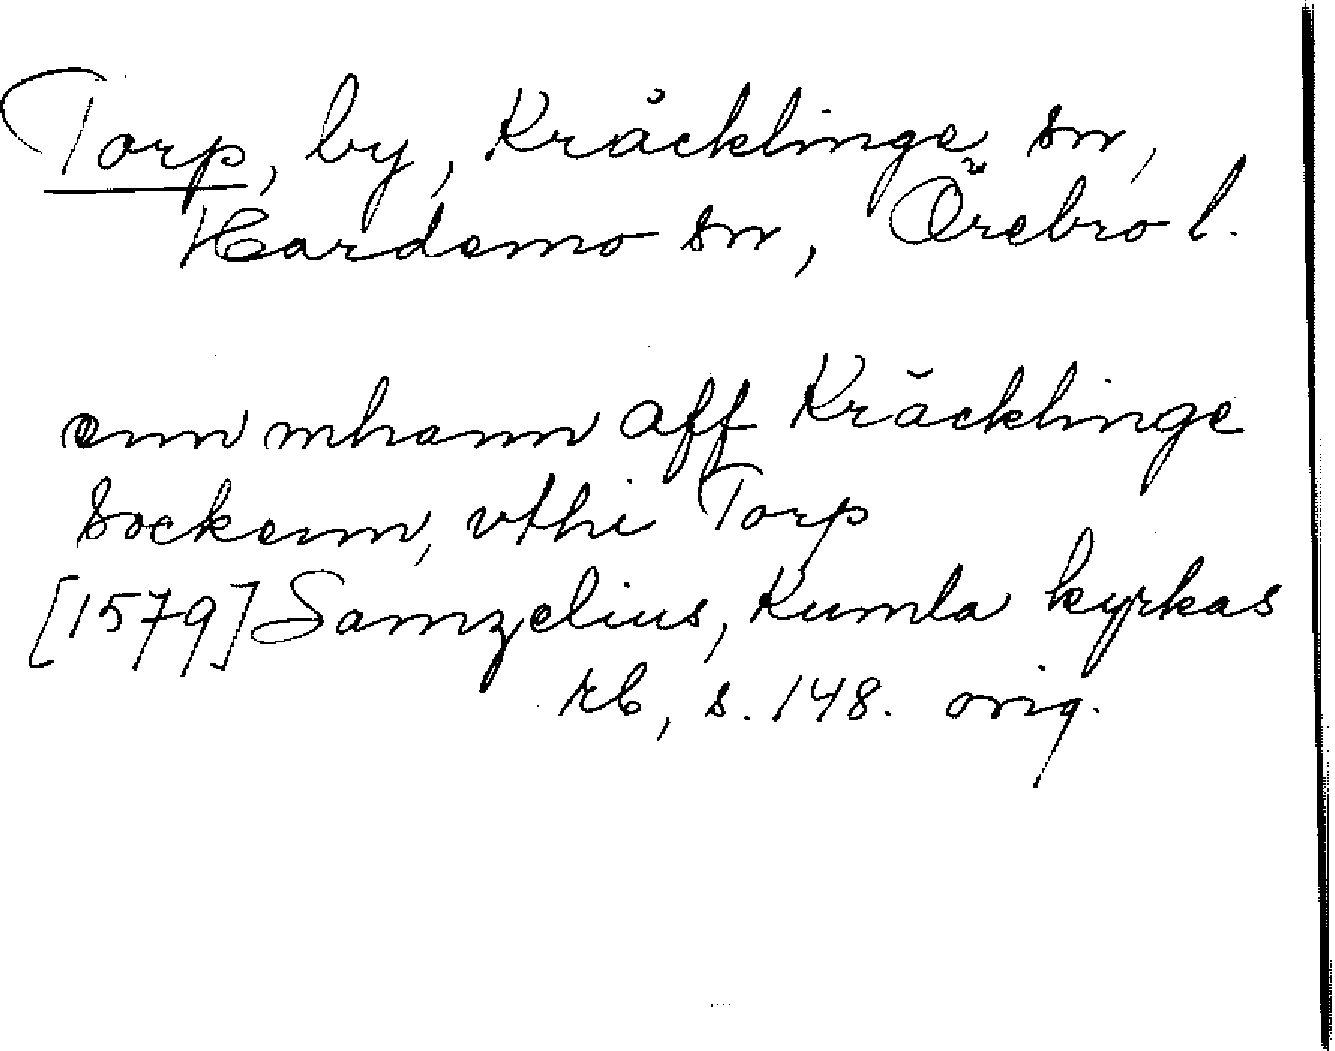 Torp, by, Kräcklinge sn,
Hardemo sn, Örebro l.
enn mhann aff Kräcklinge
Sockenn, vthi Torp
[1579] Samzelius, Kumla kyrkas
rb, s. 148. orig.